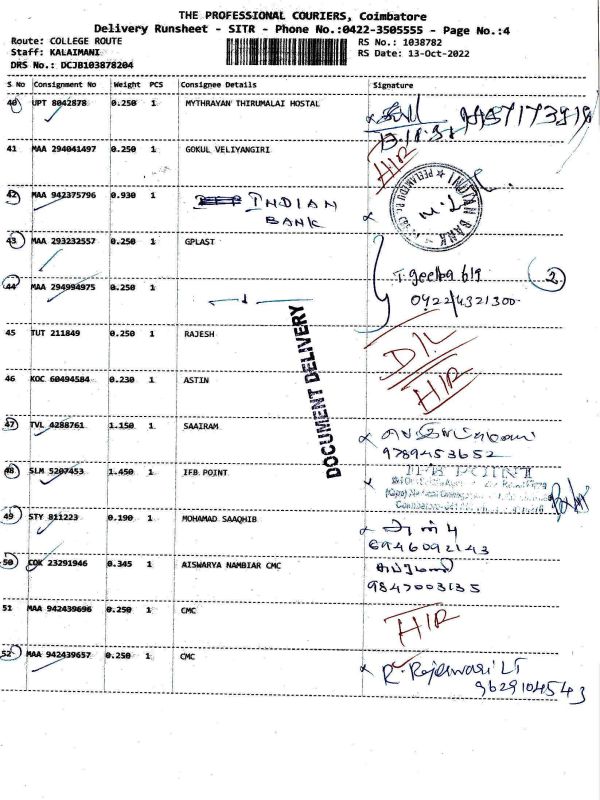 THE PROFESSIONAL COURIERS, Coimbatore
Delivery Runsheet - SITR - Phone No.:0422-3505555 - Page No.:4
Route: COLLEGE ROUTE
Staff: KALAIMANI
DRS No.: DCJB103878204
RS No.: 1038782
RS Date: 13-Oct-2022
S No Consignment No Weight PCS Consignee Details Signature
40 UPT 8042878 0.250 1 MYTHRAYAN THIRUMALAI HOSTAL
41 MAA 294041497 0.250 1 GOKUL VELIYANGIRI HIR
42 MAA 942375796 0.930 1 INDIAN BANK
INDIAN BANK
43 MAA 293232557 0.250 1 GPLAST
T. geetha
44 MAA 294994975 0.250 1 2
0422/4321300
45 TUT 211849 0.250 1 RAJESH D/L
46 KOC 60494584 0.230 1 ASTIN HIR
DOCUMENT DELIVERY
47 TVL 4288761 1.150 1 SAAIRAM
9789453652
48 SLM 5207453 1.450 1 IFB POINT IFB POINT
49 STY 811223 0.190 1 MOHAMAD SAAQHIB
6946092143
50 COK 23291946 0.345 1 AISWARYA NAMBIAR CMC
9847003135
51 MAA 942439696 0.250 1 CMC HIR
52 MAA 942439657 0.250 1 CMC
9629104543